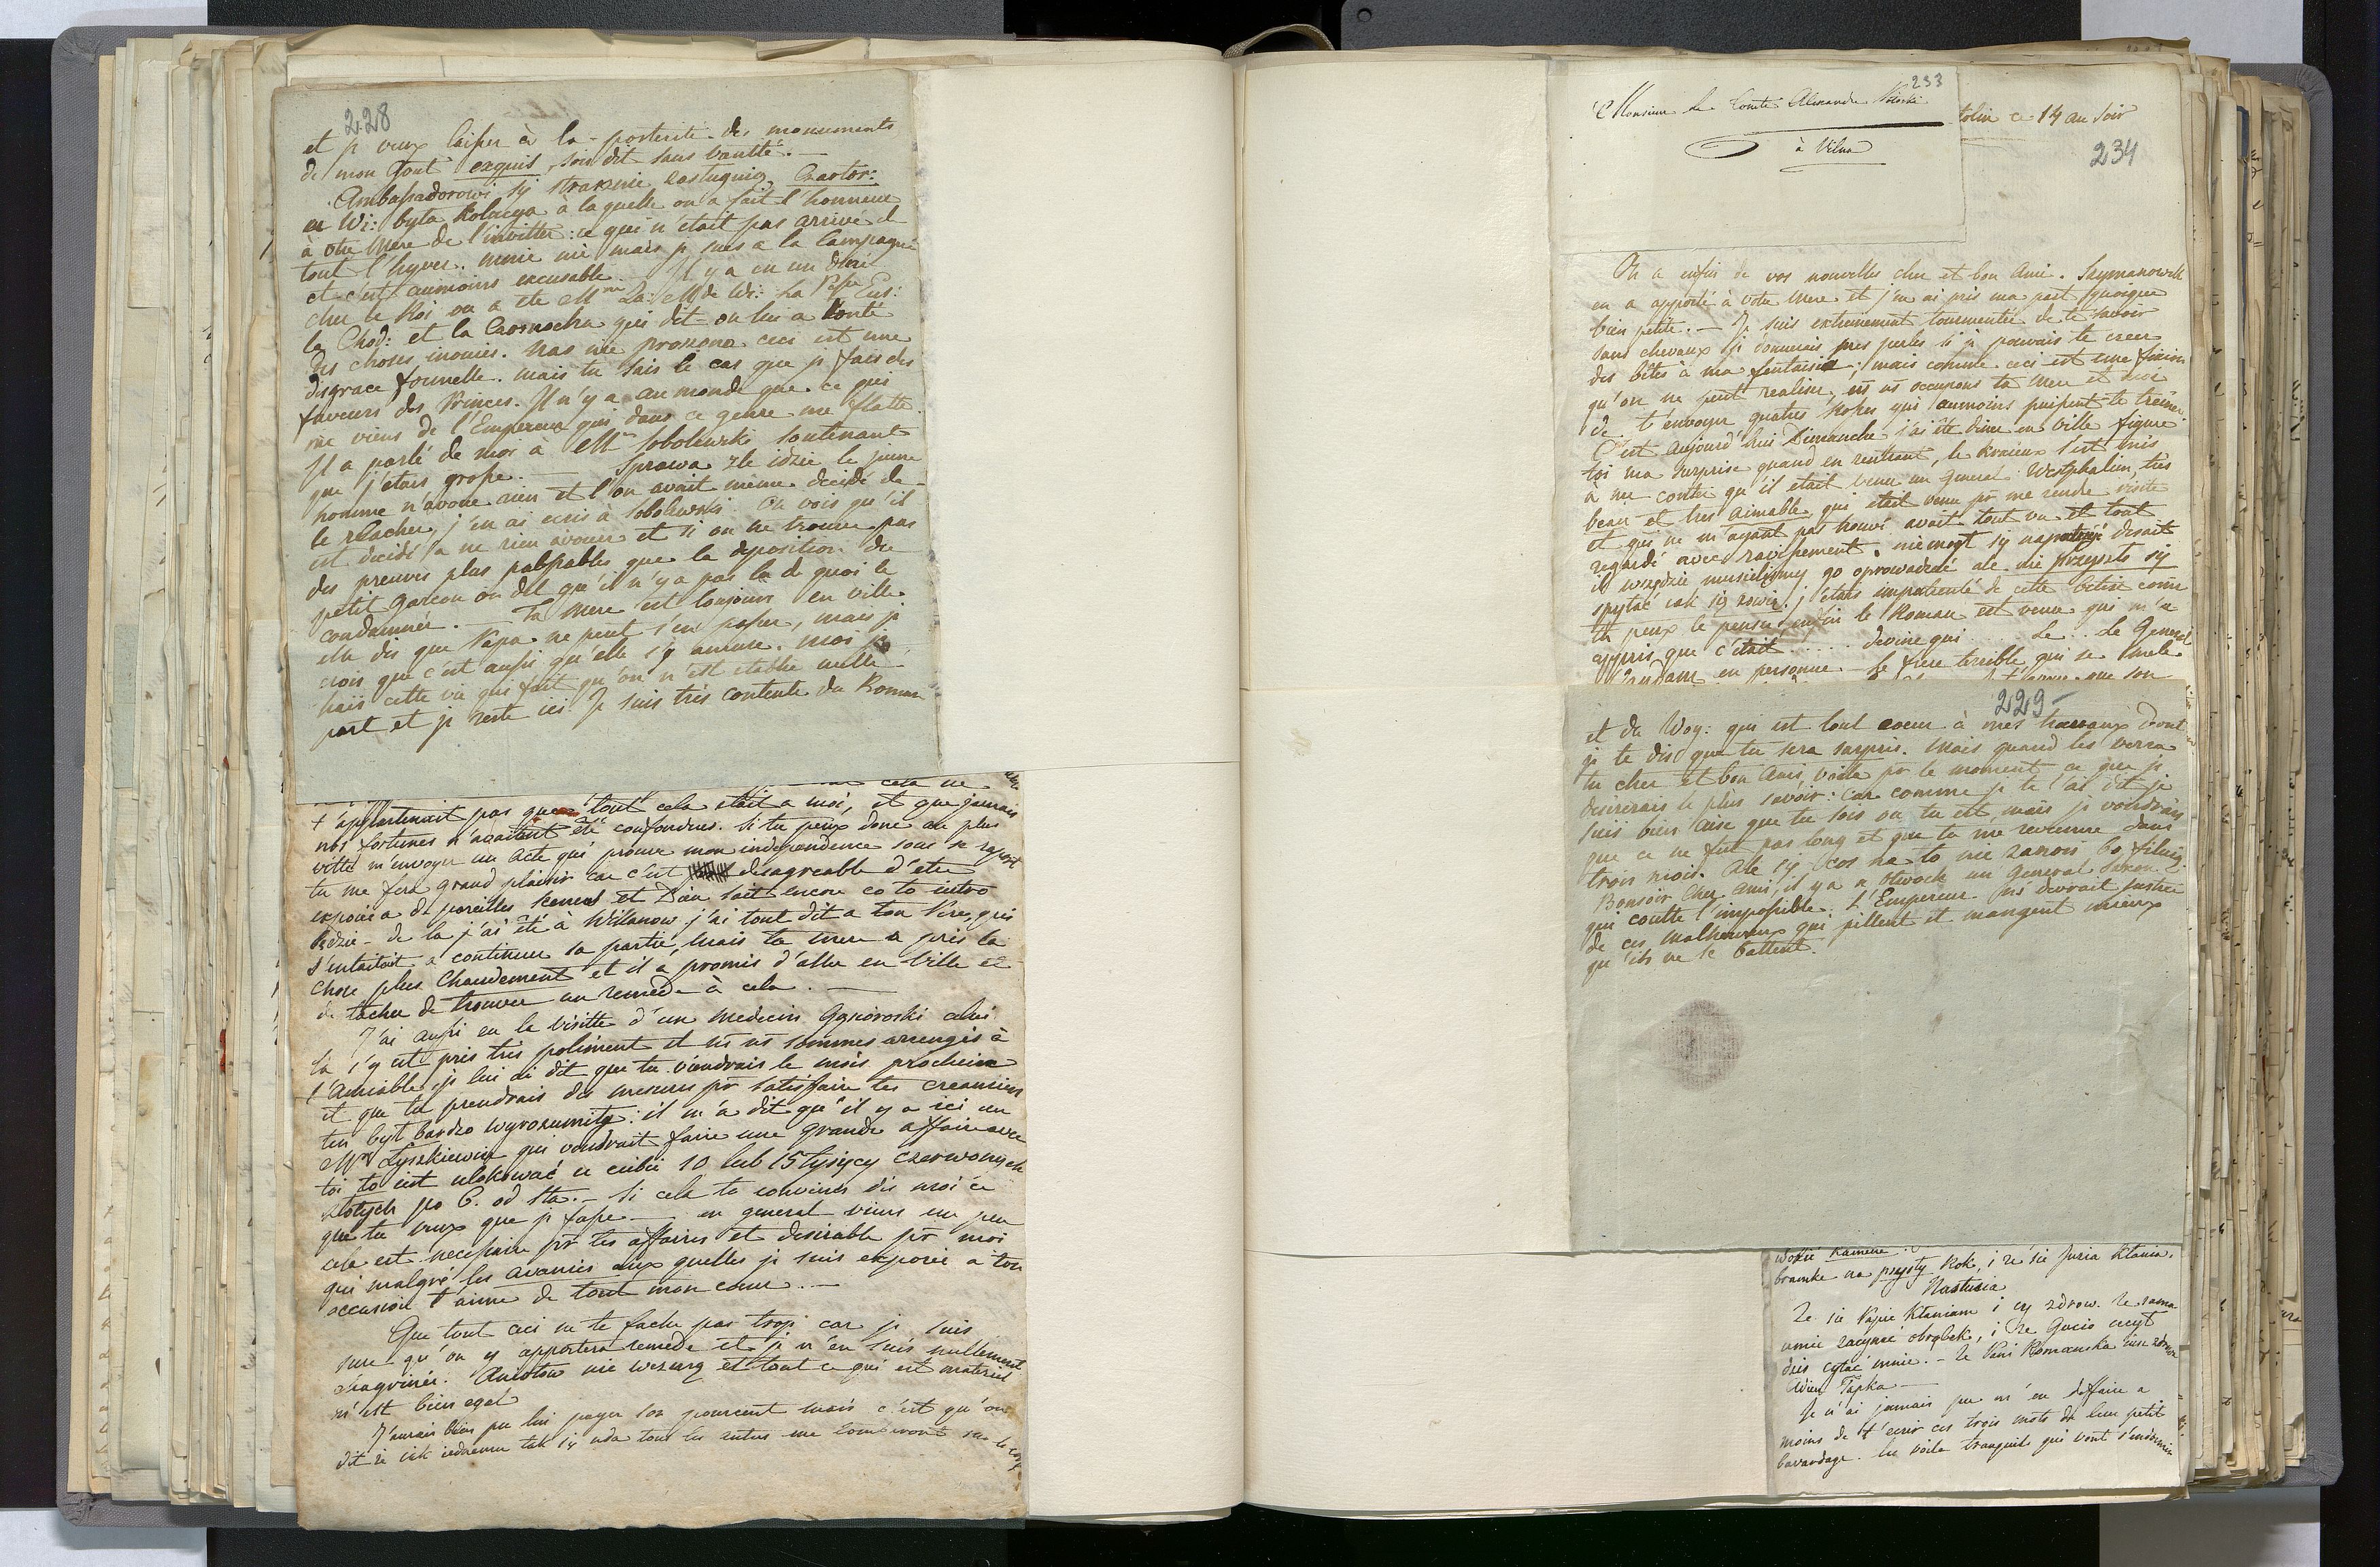 228
et je veux laisser à la posterité des monuments
de mon Gout exquis, soit dit sans vanité. —
Ambassadorowi się strasznie zasługuią, Czartor:
en Wi: była Kolacya à laquelle on a fait l'honneur
à votre Mere de l'invitter: ce qui n'était pas arrivé d
tout l'hyver. mnie nie mais je suis a la Campagne
et c'est aumoins excusable. — Il y a eu un diné
chez le Roi ou a été Mme Za: Md de Wi: La Psse Eus:
la Chod: et la Czosnocha qui dit-on lui a Conté
des choses inouies. nas nie proszono ceci est une
disgrace formelle. mais tu sais le cas que je fais des
faveurs des Princes. Il n'y a au monde que ce qui
me viens de l'Empereur qui dans ce genre me flatte.
Il a parlé de moi à Mr Sobolewski soutenant
que j'étais grosse. — Sprawa zle idzie le jeune
homme n'avoue rien et l'on avait même decidé de
le relacher, j'en ai ecris à Sobolewski. On vois qu'il
est decidé a ne rien avouer et si on ne trouve pas
des preuves plus palpables que la deposition du
petit garcon on dit qu'il n'y a pas là de quoi le
condamner. — Ta Mere est toujours en ville
elle dis que Papa ne peut s'en passer, mais je
crois que c'est aussi qu'elle s'y amuse. moi je
hais cette vie qui fait qu'on n'est etablie nulle
part et je reste ici. Je suis trés contente du Roman
cela ne
t'appartenait pas que tout cela etait a moi, et que jamais
nos fortunes n'avaitent été confondues. Si tu peux donc au plus
vitte m'envoyer un Acte qui prouve mon independence sous ce raport
tu me fera grand plaisir car c'est desagreable d'etre
exposée a de pareilles scenes et Dieu sait encore co to iutro
bedzie — de la j'ai été à Willanow, j'ai tout dit a ton Pere, qui
s'entaitait a continuer sa partie, mais ta mere a pris la
chose plus Chaudement et il a promis d'aller en Ville et
de tacher de trouver un remede à cela. —
J'ai aussi eu la visitte d'un medecin Gąsiorofski celui
la s'y est pris très poliment et ns ns sommes arrengés à
l'Amiable, je lui ai dit que tu viendrais le mois prochein
et que tu prendrais des mesures pr satisfaire tes creansiers
ten byt bardzo wyrozumity: il m'a dit qu'il y a ici un
Mr Łyszkiewicz qui voudrait faire une grande affaire avec
toi to iest ulokować u ciebie 10 lub 15 tysięcy czerwonych
złotych po 6. od sta. — Si cela te convient dis moi ce
que tu veux que je fasse — en general viens un peu
cela est necessaire pr tes affaires et desirable pr moi
qui malgré les avanies aux quelles je suis exposée a ton
occasion t'aime de tout mon coeur. —
Que tout ceci ne te fache pas trop car je suis
sure qu'on y apportera remede et je n'en suis nullement
chagrinée. Aniołow nie wezmą et tout ce qui est materiel
m'est bien egal
J'aurais bien pu lui payer son pourcent mais c'est qu'on
dit że iak iednemu tak się uda tous les autres me tomberont sur le corps
233
Monsieur Le Comte Alexandre Potocki
à Vilna
tolin ce 14 au soir
234
On a enfin de vos nouvelles cher et bon Ami. Szymanowski
en a apporté à votre Mere et j'en ai pris ma part quoique
bien petite. — Je suis extremement tourmentée de te savoir
sans chevaux, je donnerais mes perles si je pouvais te creer
des bêtes à ma fantaisie; mais comme ceci est une fiction
qu'on ne peut realiser, ns ns occupons ta Mere et moi
de t'envoyer quatres Rosses qui aumoins puissent te treiner.
C'est aujourd'hui Dimanche j'ai été diner en ville figure
toi ma surprise quand en rentrant, le s'est mis
à me conter qu'il etait venu un General Westphalien, très
beau et tres aimable, qui etait venu pr me rendre visite
et qui ne m'ayant pas trouvé avait tout vu et tout
regardé avec ravissement. nie mógł się napatrzyć disait
il wszędzie musieliśmy go oprowadzać ale nie przyszło się
spytać iak się zowie. j'étais impatienté de cette betise come
tu peux le penser, enfin le Roman est venu qui m'a
appris que c'était ..... devine qui .... Le .. Le General
Vandam en personne — le frere terrible qui se mele
que son
229
et du Woy: qui est tout coeur à mes travaux dont
je te dis que tu sera surpris. Mais quand les verra
tu cher et bon Ami, voila pr le moment ce que je
desirerais le plus savoir: car comme je te l'ai dit je
suis bien aise que tu sois ou tu est, mais je voudrais
que ce ne fut pas long et que tu me revienne dans
trois mois. Ale się cos na to nie zanosi
Bonsoir Cher Ami, il y a a Otwock un General Saxon
qui coutte l'impossible. L'Empereur ns devrait justice
de ces Malheureux qui pillent et mangent mieux
qu'ils ne se battent.
Kamiene.
bramke na przyszły Rok, i ze sie Juzia Kłania.
Nastusia
Ze sie Papie Kłaniam i czy zdrow. Ze sama
umie zaczynać obrąbek, i ze Gucio uczył
dzis czytac mnie. — Ze Pani Romanska
Adieu Papka —
Je n'ai jamais pu m'en deffaire a
moins de t'ecrir ces trois mots de leur petit
bavardage. les voila tranquils qui vont s'endormir